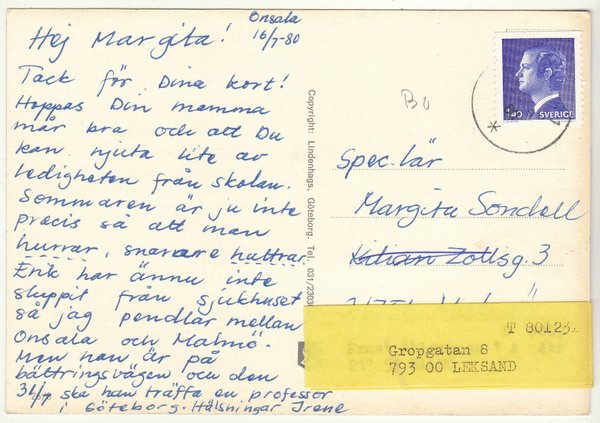 Onsala
16/7-80
Hej Margita!
Tack för Dina kort!
Hoppas Din mamma
mår bra och att Du
kan njuta lite av
ledigheten från skolan.
Sommaren är ju inte
precis så att man
hurrar, snarare huttrar.
Erik har ännu inte
sluppit från sjukhuset
så jag pendlar mellan
Onsala och Malmö.
Men han är på
bättringsvägen och den
31/7 ska han träffa en professor
i Göteborg. Hälsningar Irene
Copyright: Lindenhags, Göteborg. Tel. 031/2303
BO
SVERIGE
Spec. lär
Margita Sondell
Kilian Zollsg. 3
T 801231
Gropgatan 8
793 00 LEKSAND